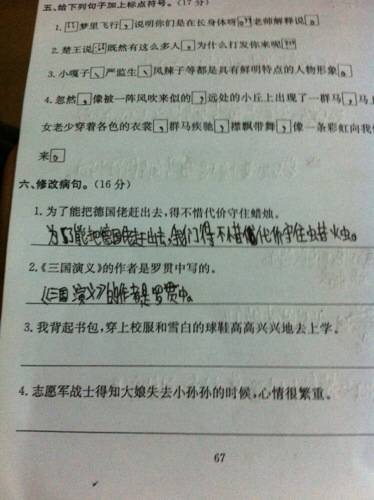 五、给下列句子加上标点符号。(17分)
1. “梦里飞行，说明你们是在长身体呀。”老师解释说。
2. 楚王说：“既然有这么多人，为什么打发你来呢？”
3. 小嘎子、严监生、凤辣子等都是具有鲜明特点的人物形象。
4. 忽然，像被一阵风吹来似的，远处的小丘上出现了一群马，马上
女老少穿着各色的衣裳，群马疾驰，襟飘带舞，像一条彩虹向我
来。
六、修改病句。(16分)
1. 为了能把德国佬赶出去，得不惜代价守住蜡烛。
为了能把德国佬赶出去，我们得不惜代价守住蜡烛。
2.《三国演义》的作者是罗贯中写的。
《三国演义》的作者是罗贯中。
3. 我背起书包，穿上校服和雪白的球鞋高高兴兴地去上学。
4. 志愿军战士得知大娘失去小孙孙的时候，心情很繁重。
67